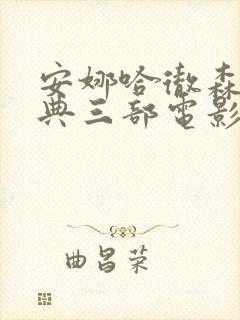 安娜哈澈森
典三部电影
曲昌荣